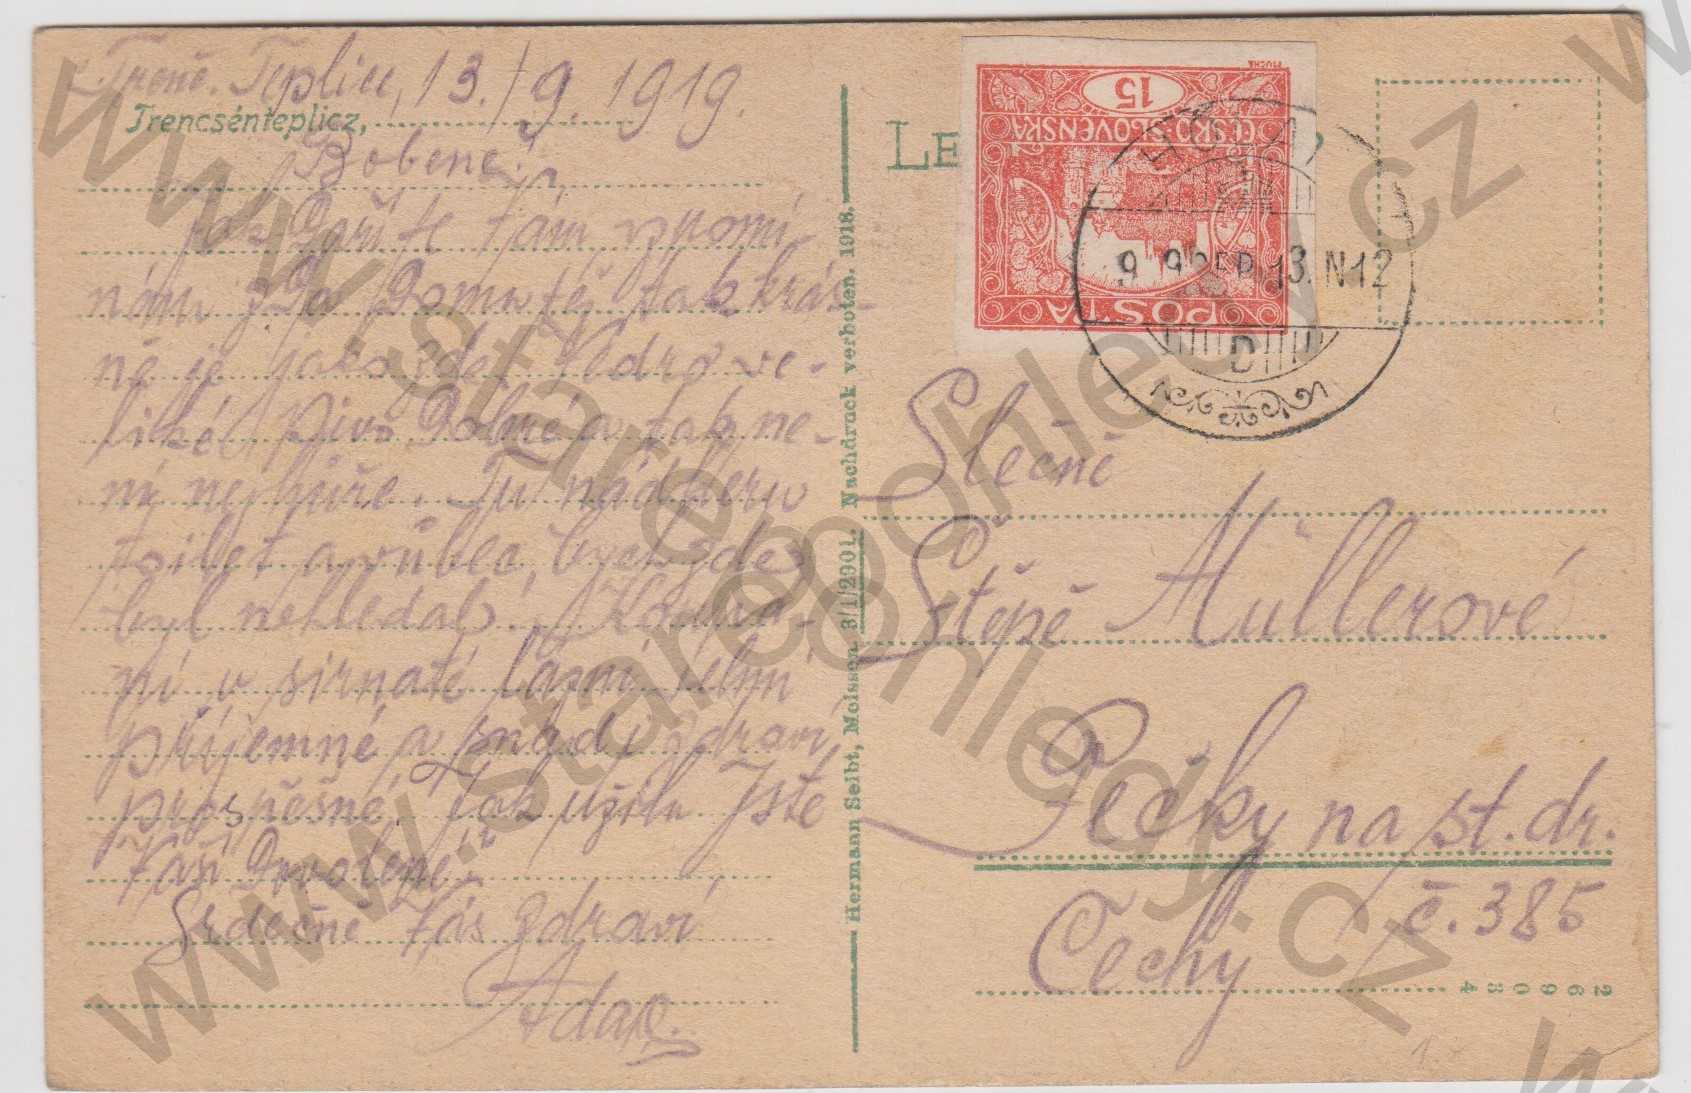 Trenč. Teplice, 13./9. 1919.
Trencsénteplicz,
Bobene!
Jak Daří te tam vzpomí
nám zda Doma též tak krás-
ně je jako zde. Vedro ve-
liké Pivo Dobré a tak ne-
ní nejhůře. Tu nádheru
toilet a vůbec, bych zde
byl nehledal. Koupá-
ní v sirnaté lázni velmi
příjemné a snad i zdraví
prospěšné. Jak užila Jste
Vaší Dovolené?
Srdečně Vás zdraví
Adam.
Hermann Seibt, Meissen. 3/1/2901. Nachdruck verboten. 1918.
LE
MUCHA
15
ČESKO-SLOVENSKÁ
POŠTA
9 SEP. 13. N12
D
Slečně
Štěpě Müllerové
Pečky na st. dr.
č. 385
Čechy
269034
www.stare pohledy.cz
www.starepohledy.cz